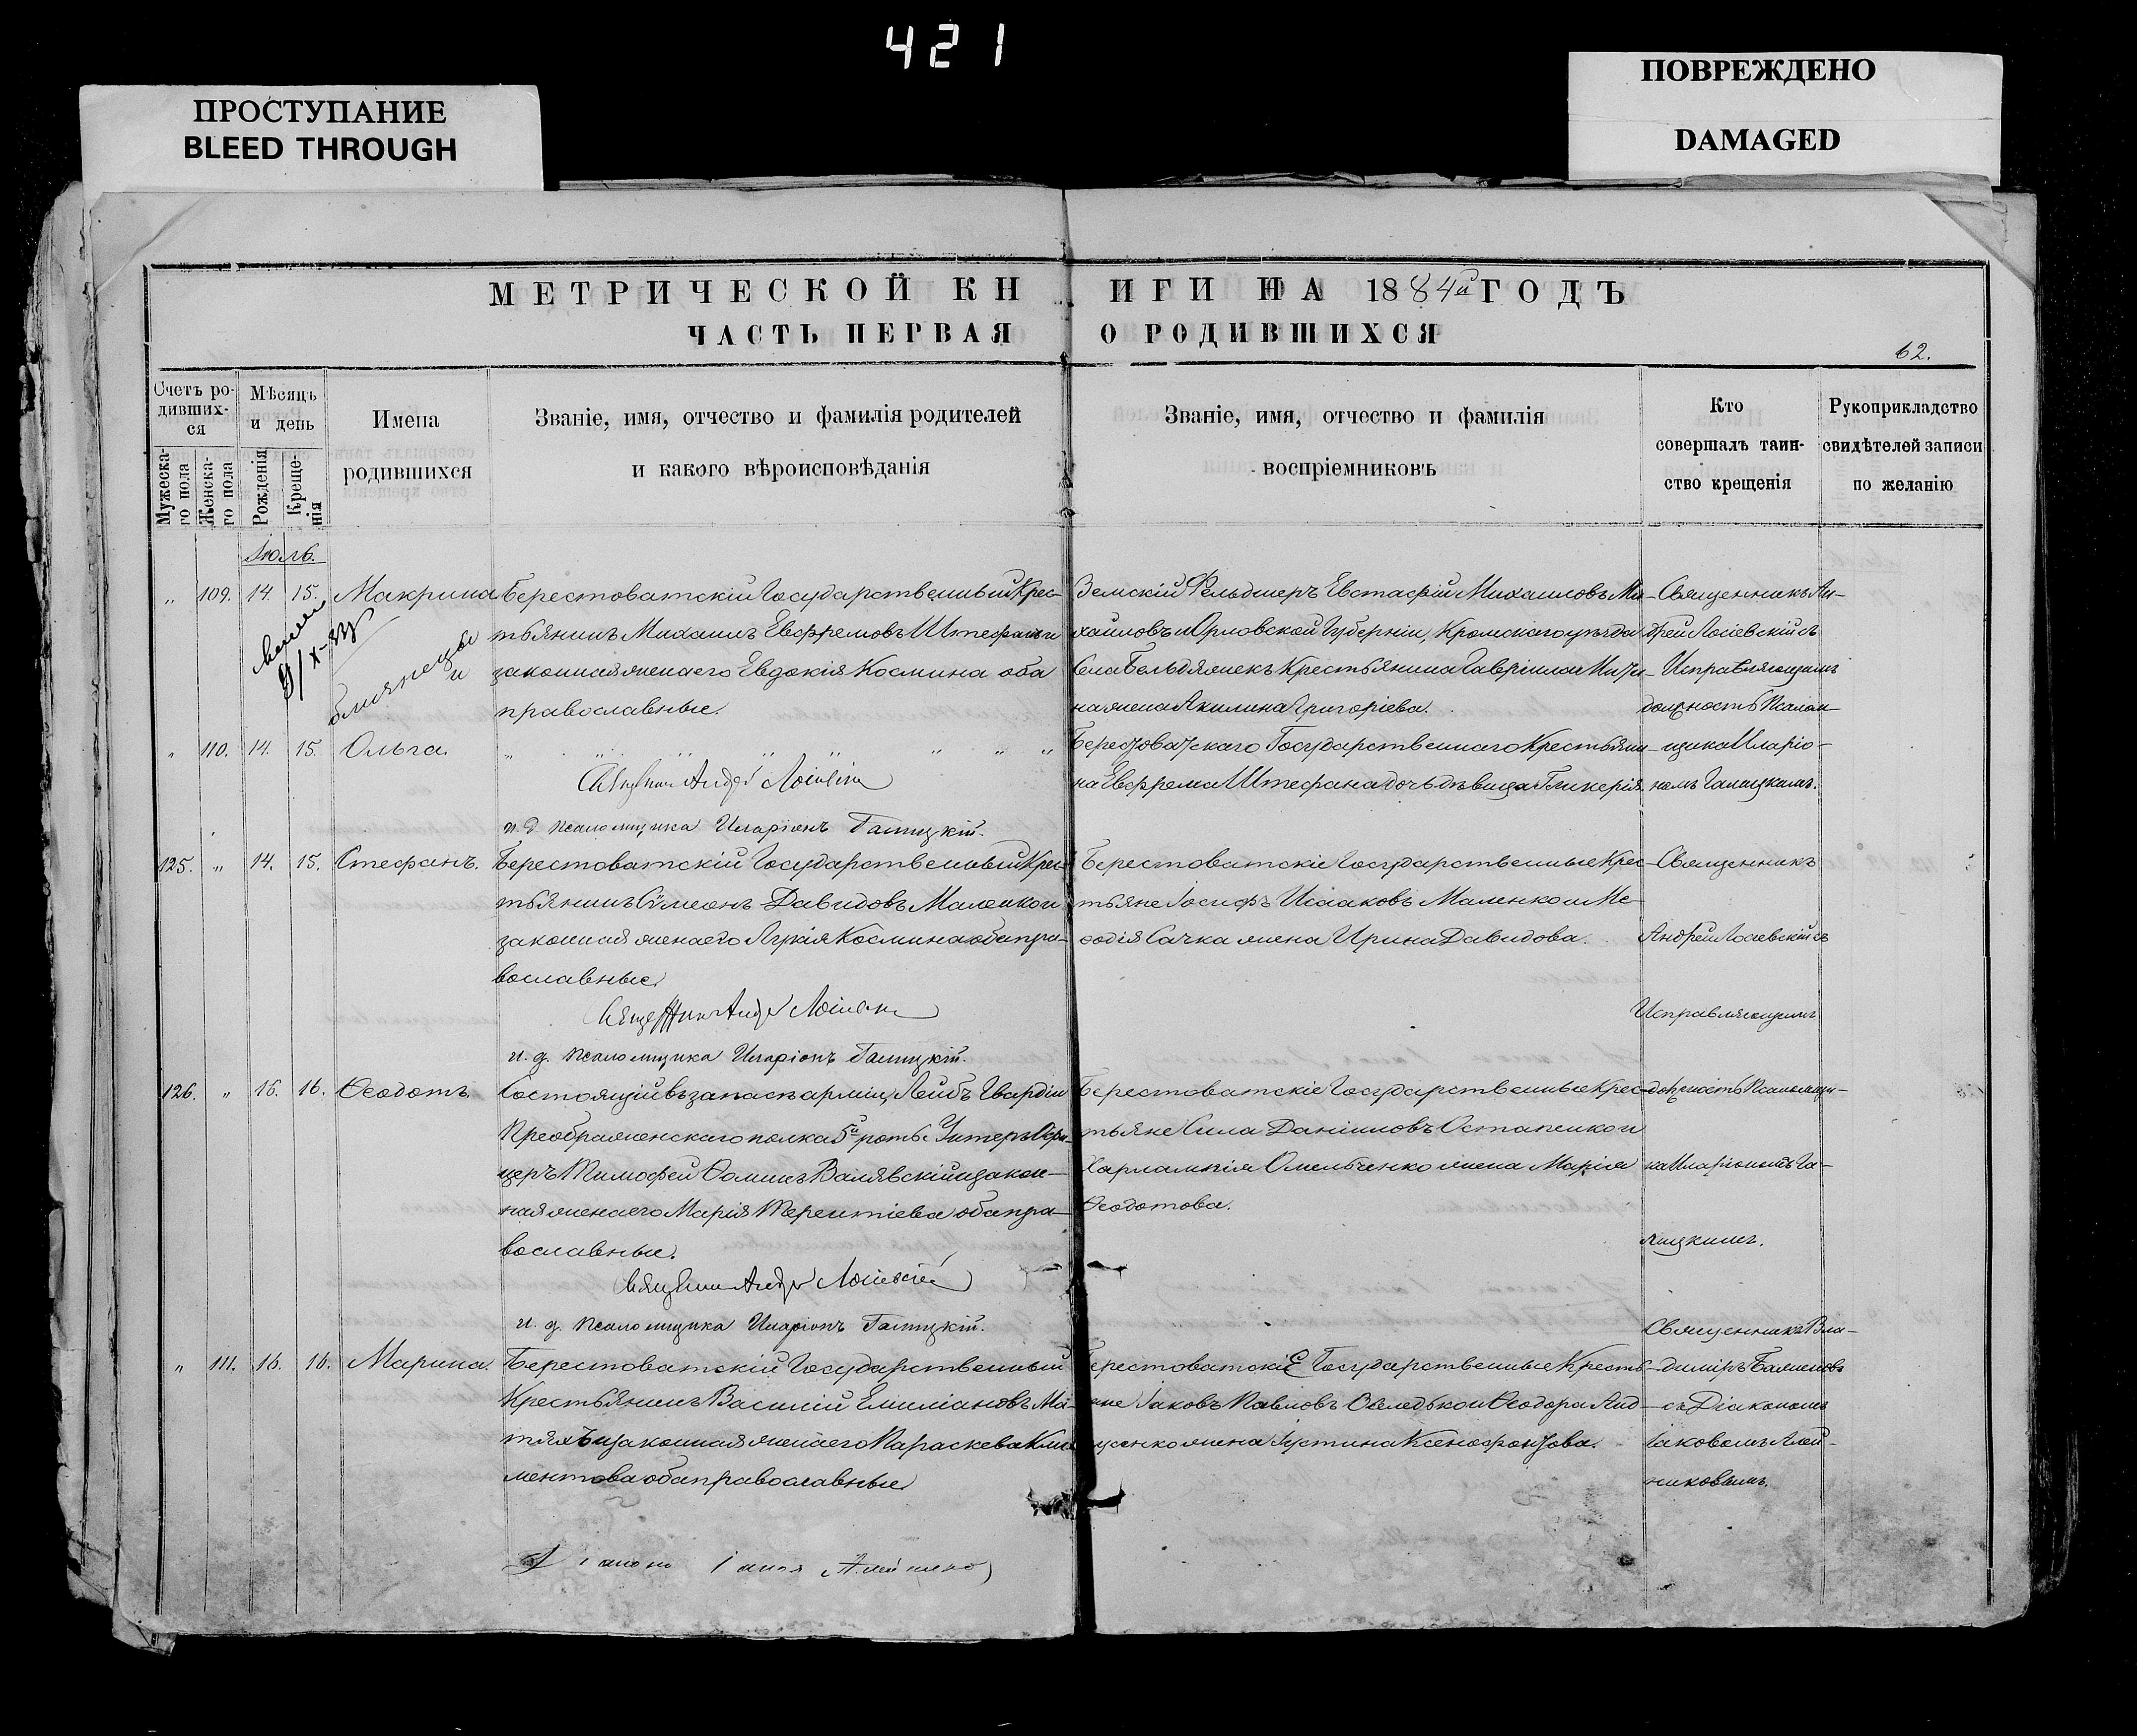 421
ПРОСТУПАНИЕ
BLEED THROUGH
ПОВРЕЖДЕНО
DAMAGED
МЕТРИЧЕСКОЙ КНИГИ НА 1884й ГОДЪ
ЧАСТЬ ПЕРВАЯ О РОДИВШИХСЯ
62.
Счетъ ро-
дивших-
ся
Мужеска-
го пола
Женска-
го пола
Мѣсяцъ
и день
Рожденія
Креще-
нія
Имена
родившихся
Званіе, имя, отчество и фамилія родителей
и какого вѣроисповѣданія
Званіе, имя, отчество и фамилія
воспріемниковъ
Кто
совершалъ таин-
ство крещенія
Рукоприкладство
свидѣтелей записи
по желанію
Іюль.
„ 109. 14. 15. Макрина
близнецы
и
Берестоватскій Государственный Крес-
тьянинъ Михаилъ Евфремовъ Штефанъ и
законная жена его Евдокія Космина оба
православные.
Земскій Фельдшеръ Евстафій Михаиловъ Ми-
хаиловъ и Орловской Губерніи, Кромскаго уѣзда
Села Гавріила
жена Акилина Григоріева.
Священникъ Ан-
дрей Лосіевскій съ
Исправляющимъ
должность Псалом-
„ 110. 14. 15. Ольга.
„ „ „ „ „ „ „ „
Берестоватскаго Государственнаго Крестьяни-
на Евфрема Штефана дочь дѣвица Гликерія.
щика Иларіо-
номъ Галицкимъ.
Священникъ Андрей Лосіевскій
и. д. псаломщика Иларіонъ Галицкій.
125. „ 14. 15. Стефанъ.
Берестоватскій Государственный Крес-
тьянинъ Сѵмеонъ Давидовъ Маленко и
законная жена его Космина оба пра-
вославные
Берестоватскіе Государственные Крес-
тьяне Іосифъ Исааковъ Маленко и Ме-
ѳодія Сачка жена Ирина Давидова.
Священникъ
Андрей Лосіевскій съ
Исправляющимъ
Священникъ Андрей Лосіевскій
и. д. псаломщика Иларіонъ Галицкій.
126. „ 16. 16. Ѳеодотъ.
Состоящій въ запасѣ арміи, Лейбъ Гвардіи
Преображенскаго полка 5й роты Унтеръ Офи-
церъ Тимофей Ѳоминъ Валявскій и закон-
ная жена его Марія Терентіева оба пра-
вославные.
Берестоватскіе Государственные Крес-
тьяне Сила Даніиловъ Остапенко и
Харлампія Омельченко жена Марія
Ѳеодотова.
должность Псаломщи-
ка Иларіономъ Га-
лицкимъ.
Священникъ Андрей Лосіевскій
и. д. псаломщика Иларіонъ Галицкій.
„ 111. 16. 16. Марина.
Берестоватскій Государственный
Крестьянинъ Василій Емиліановъ Ма-
тяхъ и законная жена его Параскева Кли-
ментова оба православные
Берестоватскіе Государственные Кресть-
яне Іаковъ Павловъ и Ѳеодора Анд-
жена Іустина Ксенофонтова.
Священникъ Вла-
диміръ
съ Діакономъ
Іаковомъ Алей-
никовымъ.
Діаконъ Іаковъ Алейниковъ